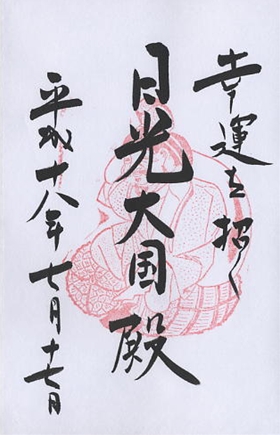 幸運を招く
日光大国殿
平成十八年七月十七日